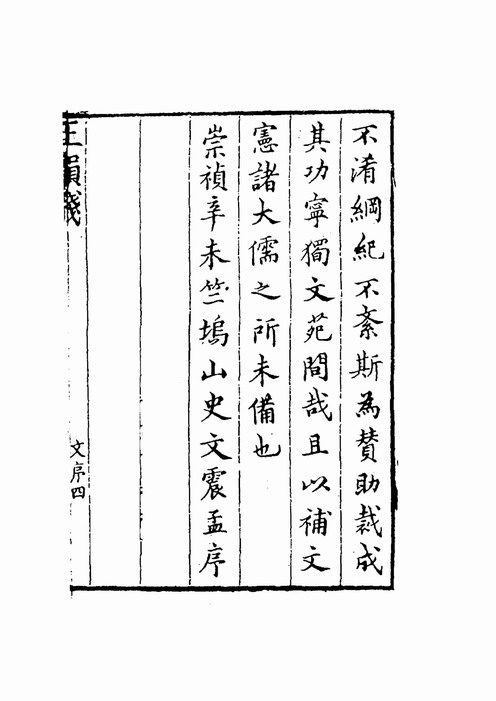 不淆綱紀不紊斯為賛助裁成
其功寧獨文苑間哉且以補文
憲諸大儒之所未備也
崇禎辛未竺塢山史文震孟序
文序四